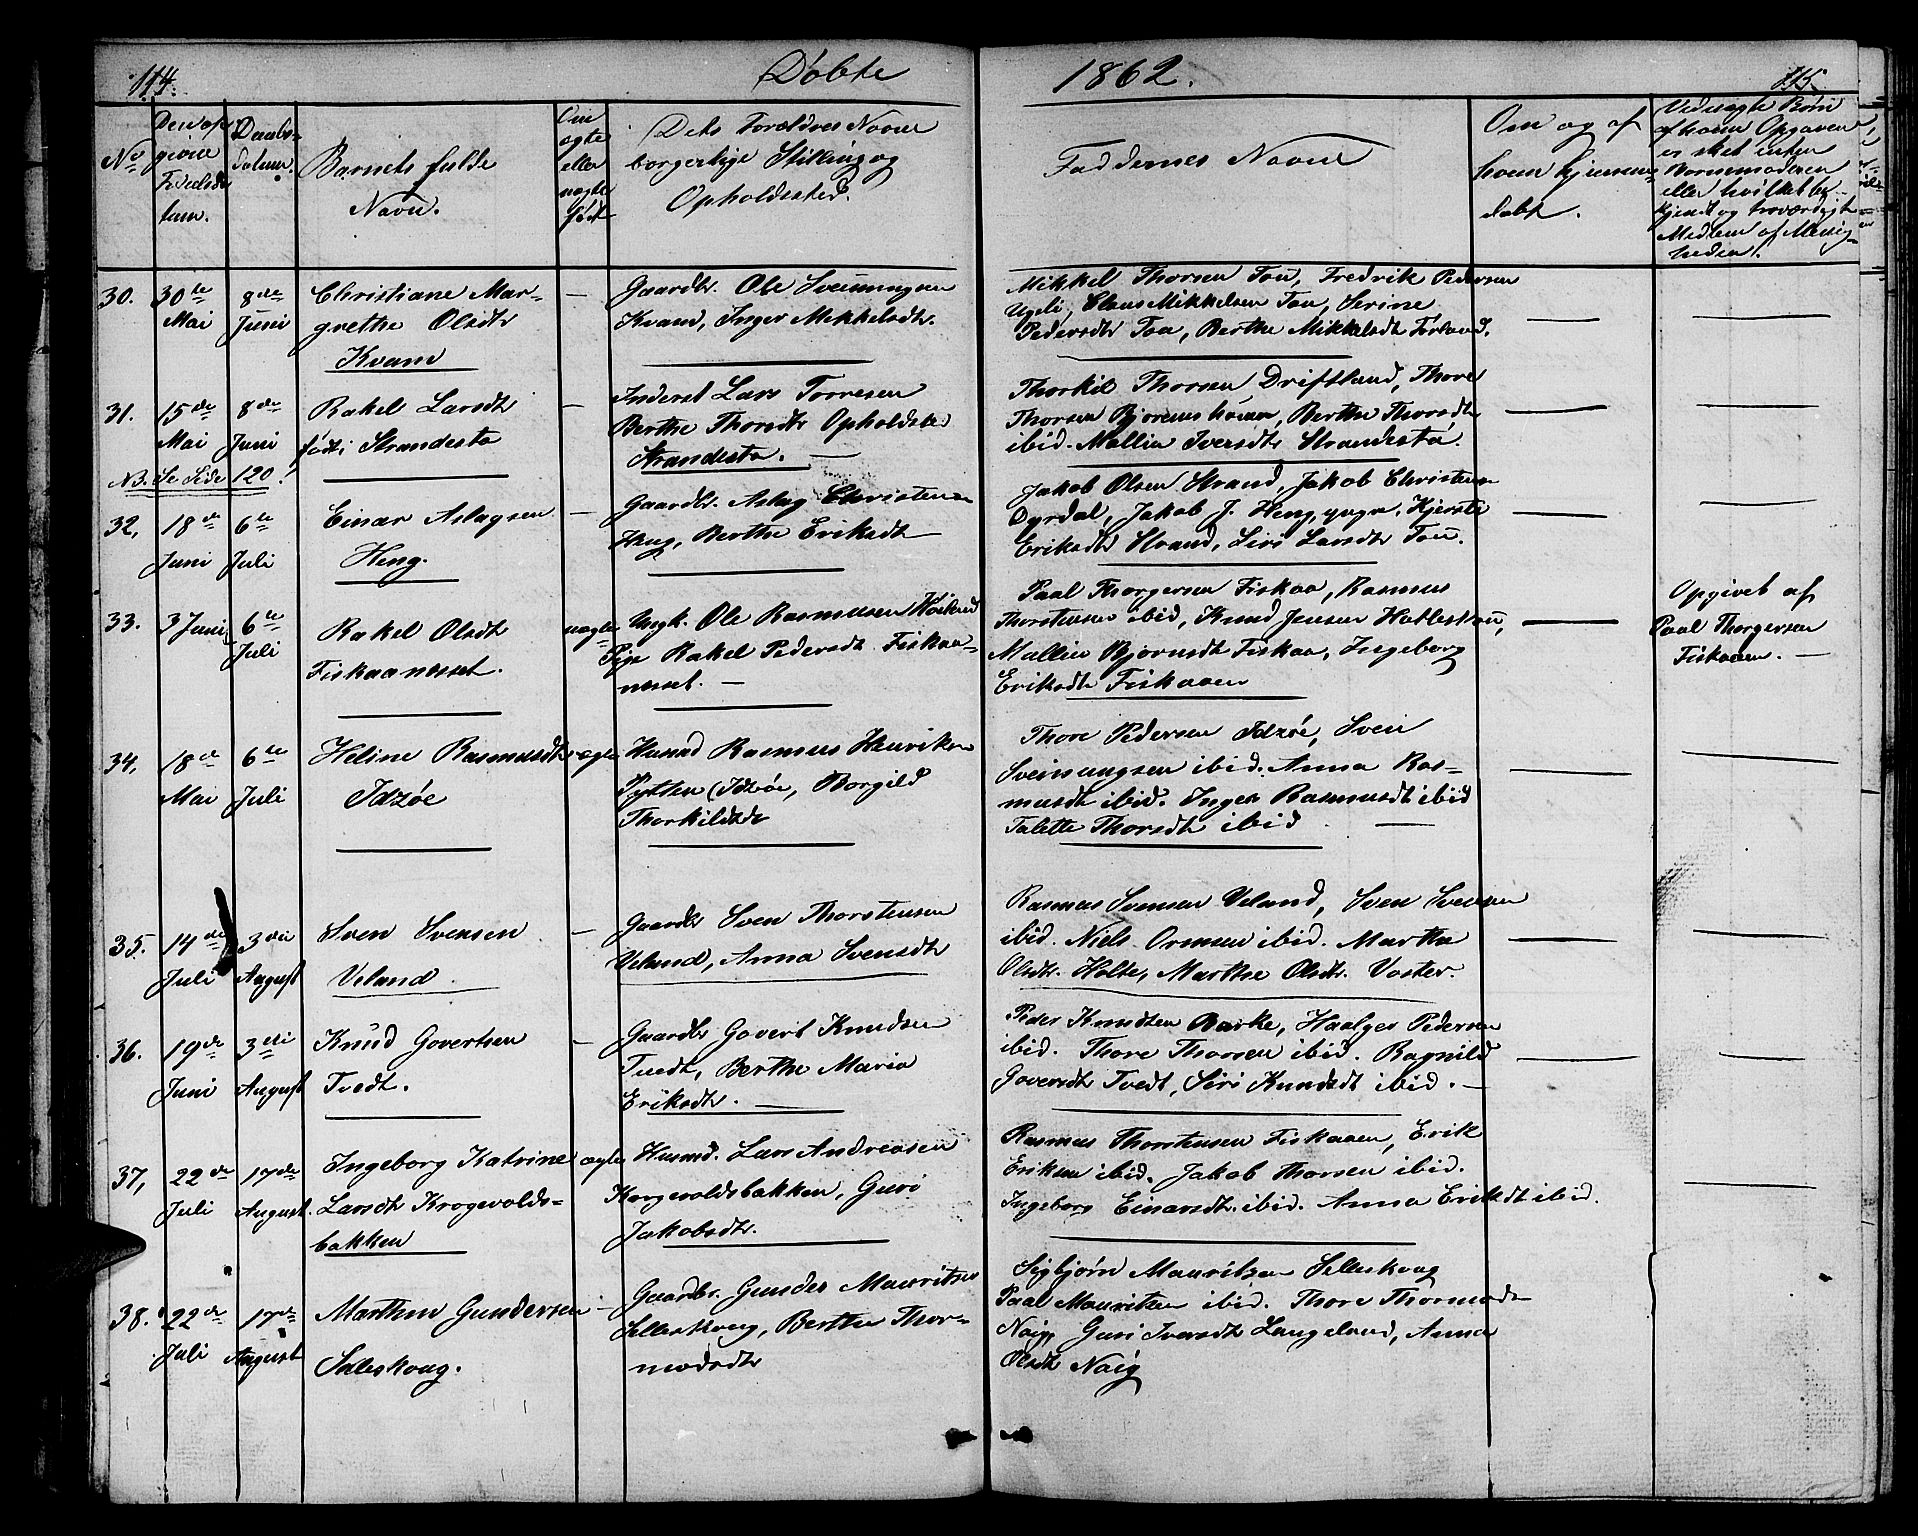 114.
Døbte
1862.
115.
No
Den op
givne
Fødselsda
tum.
Daabs-
datum.
Barnets fulde
Navn.
Om
ægte
eller
uægte
født
Dets Forældres Navne
borgerlige Stilling og
Opholdssted.
Faddernes Navne
Om og af
hvem hjemme-
døbt.
Vid uægte Børn
af hvem Opgaven
er sket enten
Barnemoderen
eller hvilket be
kjendt og troværdigt
Medlem af Menig-
heden.
30.
30te
Mai
8de
Juni
Christiane Mar-
grethe Olsdtr
Kvam
—
Gaardbr. Ole Sveinungsen
Kvam, Inger Mikkelsdtr.
Mikkel Thorsen Tou, Fredrik Pedersen
Claus Mikkelsen Tou, Serine
Pedersdtr Tou, Berthe Mikkelsdtr Førland.
—
—
31.
15de
Mai
8de
Juni
Rakel Larsdtr
født i Strandestø
—
Inderst Lars Torresen
Berthe Thorsdtr Opholdsted
Strandestø. —
Thorkil Thorsen Driftland, Thore
Thorsen Bjørenshaven, Berthe Thorsdtr
ibid. Mallin Iversdtr Strandestø.
—
—
NB. Se Side 120!
32,
18de
Juni
6te
Juli
Einar Aslagsen
Heng.
—
Gaardbr. Aslag Christensen
Heng, Berthe Eriksdtr
Jakob Olsen Strand, Jakob Christensen
Dyrdal, Jakob J. Heng, yngr, Kjersti
Eriksdtr Strand, Siri Larsdtr Tou.
—
—
33.
3 Juni
6te
Juli
Rakel Olsdtr
Fiskaanesset.
uægte
Ungk. Ole Rasmussen
Pige Rakel Pedersdt Fiskaa-
nesset. —
Paal Thorgersen Fiskaa, Rasmus
Thorstensen ibid, Knud Jensen Hatleskou,
Mallin Bjørnsdt Fiskaa, Ingeborg
Eriksdtr Fiskaaen
—
Opgivet af
Paal Thorgersen
Fiskaaen. —
34,
18de
Mai
6te
Juli
Heline Rasmusdtr
Idzøe
ægte
Husmd Rasmus Henriksen
Pytten (Idzøe, Borgild
Thorkildsdtr
Thore Pedersen Idzøe, Sven
Sveinungsen ibid. Anna Ras-
musdt ibid. Inger Rasmusdt ibid
Talette Thorsdt ibid —
—
—
35.
14de
Juli
3die
August
Sven Svensen
Veland.
—
Gaardbr Sven Thorstensen
Veland, Anna Svensdtr
Rasmus Svensen Veland, Sven Svensen
ibid. Niels Ormsen ibid. Martha
Olsdtr. Holte, Marthe Olsdtr. Voster.
—
—
36.
19de
Juni
3die
August
Knud Govertsen
Tvedt.
—
Gaardbr Govert Knudsen
Tvedt, Berthe Maria
Eriksdtr. —
Peder Knudsen Barke, Haalger Pedersen
ibid. Thore Thorsen ibid. Ragnild
Goversdtr Tvedt, Siri Knudsdt ibid. —
—
—
37,
22de
Juli
17de
August.
Ingeborg Katrine
Larsdtr Krogevolds-
bakken
ægte
Husmd. Lars Andreasen
Korgevoldsbakken, Guri
Jakobsdtr.
Rasmus Thorstensen Fiskaaen, Erik
Eriksen ibid. Jakob Thorsen ibid.
Ingeborg Einarsdtr. ibid. Anna Eriksdt ibid.
—
38.
22de
Juli
17de
August
Marthin Gundersen
Selleskoug.
—
Gaardbr. Gunder Mauritsen
Selleskoug, Berthe Thor-
modsdtr
Sigbjørn Mauritsen Selleskoug
Paal Mauritsen ibid. Thore Thormods
Naig, Guri Iversdtr Langeland, Anna
Olsdtr Naig